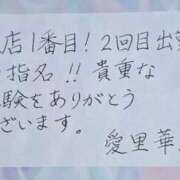 店1番目!2回目出勤
指名!!貴重な
験をありがとう
ざいます。
愛里華